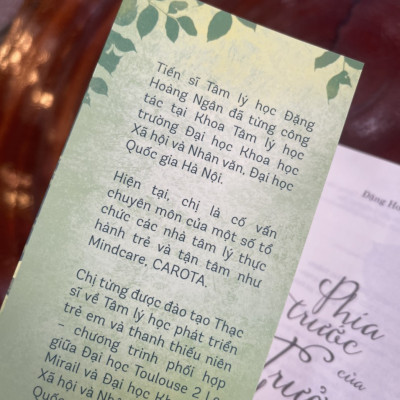 Tiến sĩ Tâm lý học Đặng
Hoàng Ngân đã từng công
tác tại Khoa Tâm lý học
trường Đại học Khoa học
Xã hội và Nhân văn, Đại học
Quốc gia Hà Nội.
Hiện tại, chị là cố vấn
chuyên môn của một số tổ
chức các nhà tâm lý thực
hành trẻ và tận tâm như
Mindcare, CAROTA.
Chị từng được đào tạo Thạc
sĩ về Tâm lý học phát triển
trẻ em và thanh thiếu niên
– chương trình phối hợp
giữa Đại học Toulouse 2 Le
Mirail và Đại học Kh
Xã hội và Nhân
Quốc
Đặng Ho
Phía
trước
của